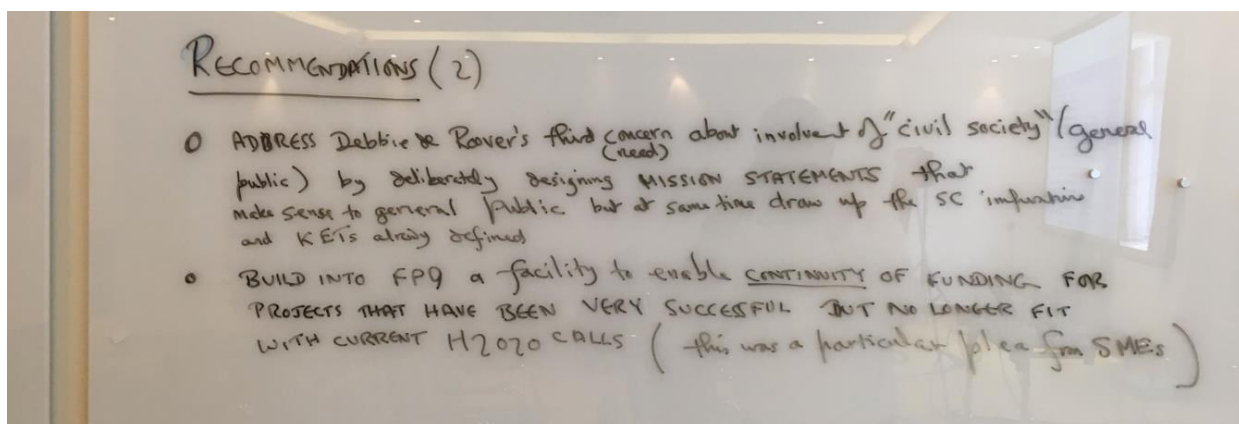 RECOMMENDATIONS (2)
O ADDRESS Debbie & Roover's third concern about involvent of "civil society" (general
(need)
public) by deliberately designing MISSION STATEMENTS that
make sense to general public but at same time draw up the SC
and KETs already defined
• BUILD INTO FP9 a facility to enable CONTINUITY OF FUNDING FOR
PROJECTS THAT HAVE BEEN VERY SUCCESSFUL BUT NO LONGER FIT
WITH CURRENT H2020 CALLS (this was a particular plea from SMEs)